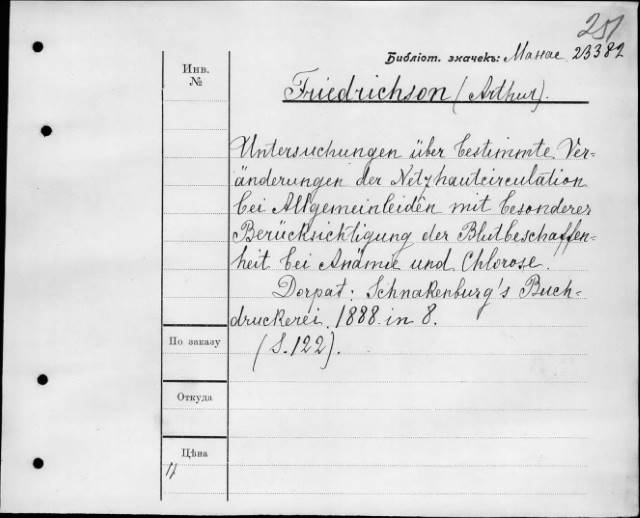 251
Библіот. значекъ: Манас 23382
Инв.
№
Friedrichson (Arthur).
Untersuchungen über bestimmte Ver-
änderungen der Netzhautcirculation
bei Allgemeinleiden mit besonderer
Berücksichtigung der Blutbeschaffen-
heit bei Anämie und Chlorose.
Dorpat: Schnakenburg's Buch-
druckerei. 1888. in 8.
По заказу
(S. 122).
Откуда
Цѣна